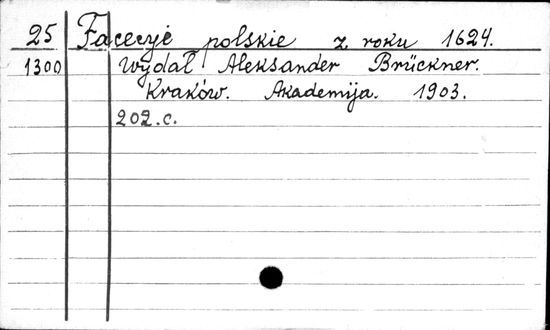 25 Facecyje polskie z roku 1624.
1300 wydał Aleksander Brückner.
Kraków. Akademija. 1903.
202.c.